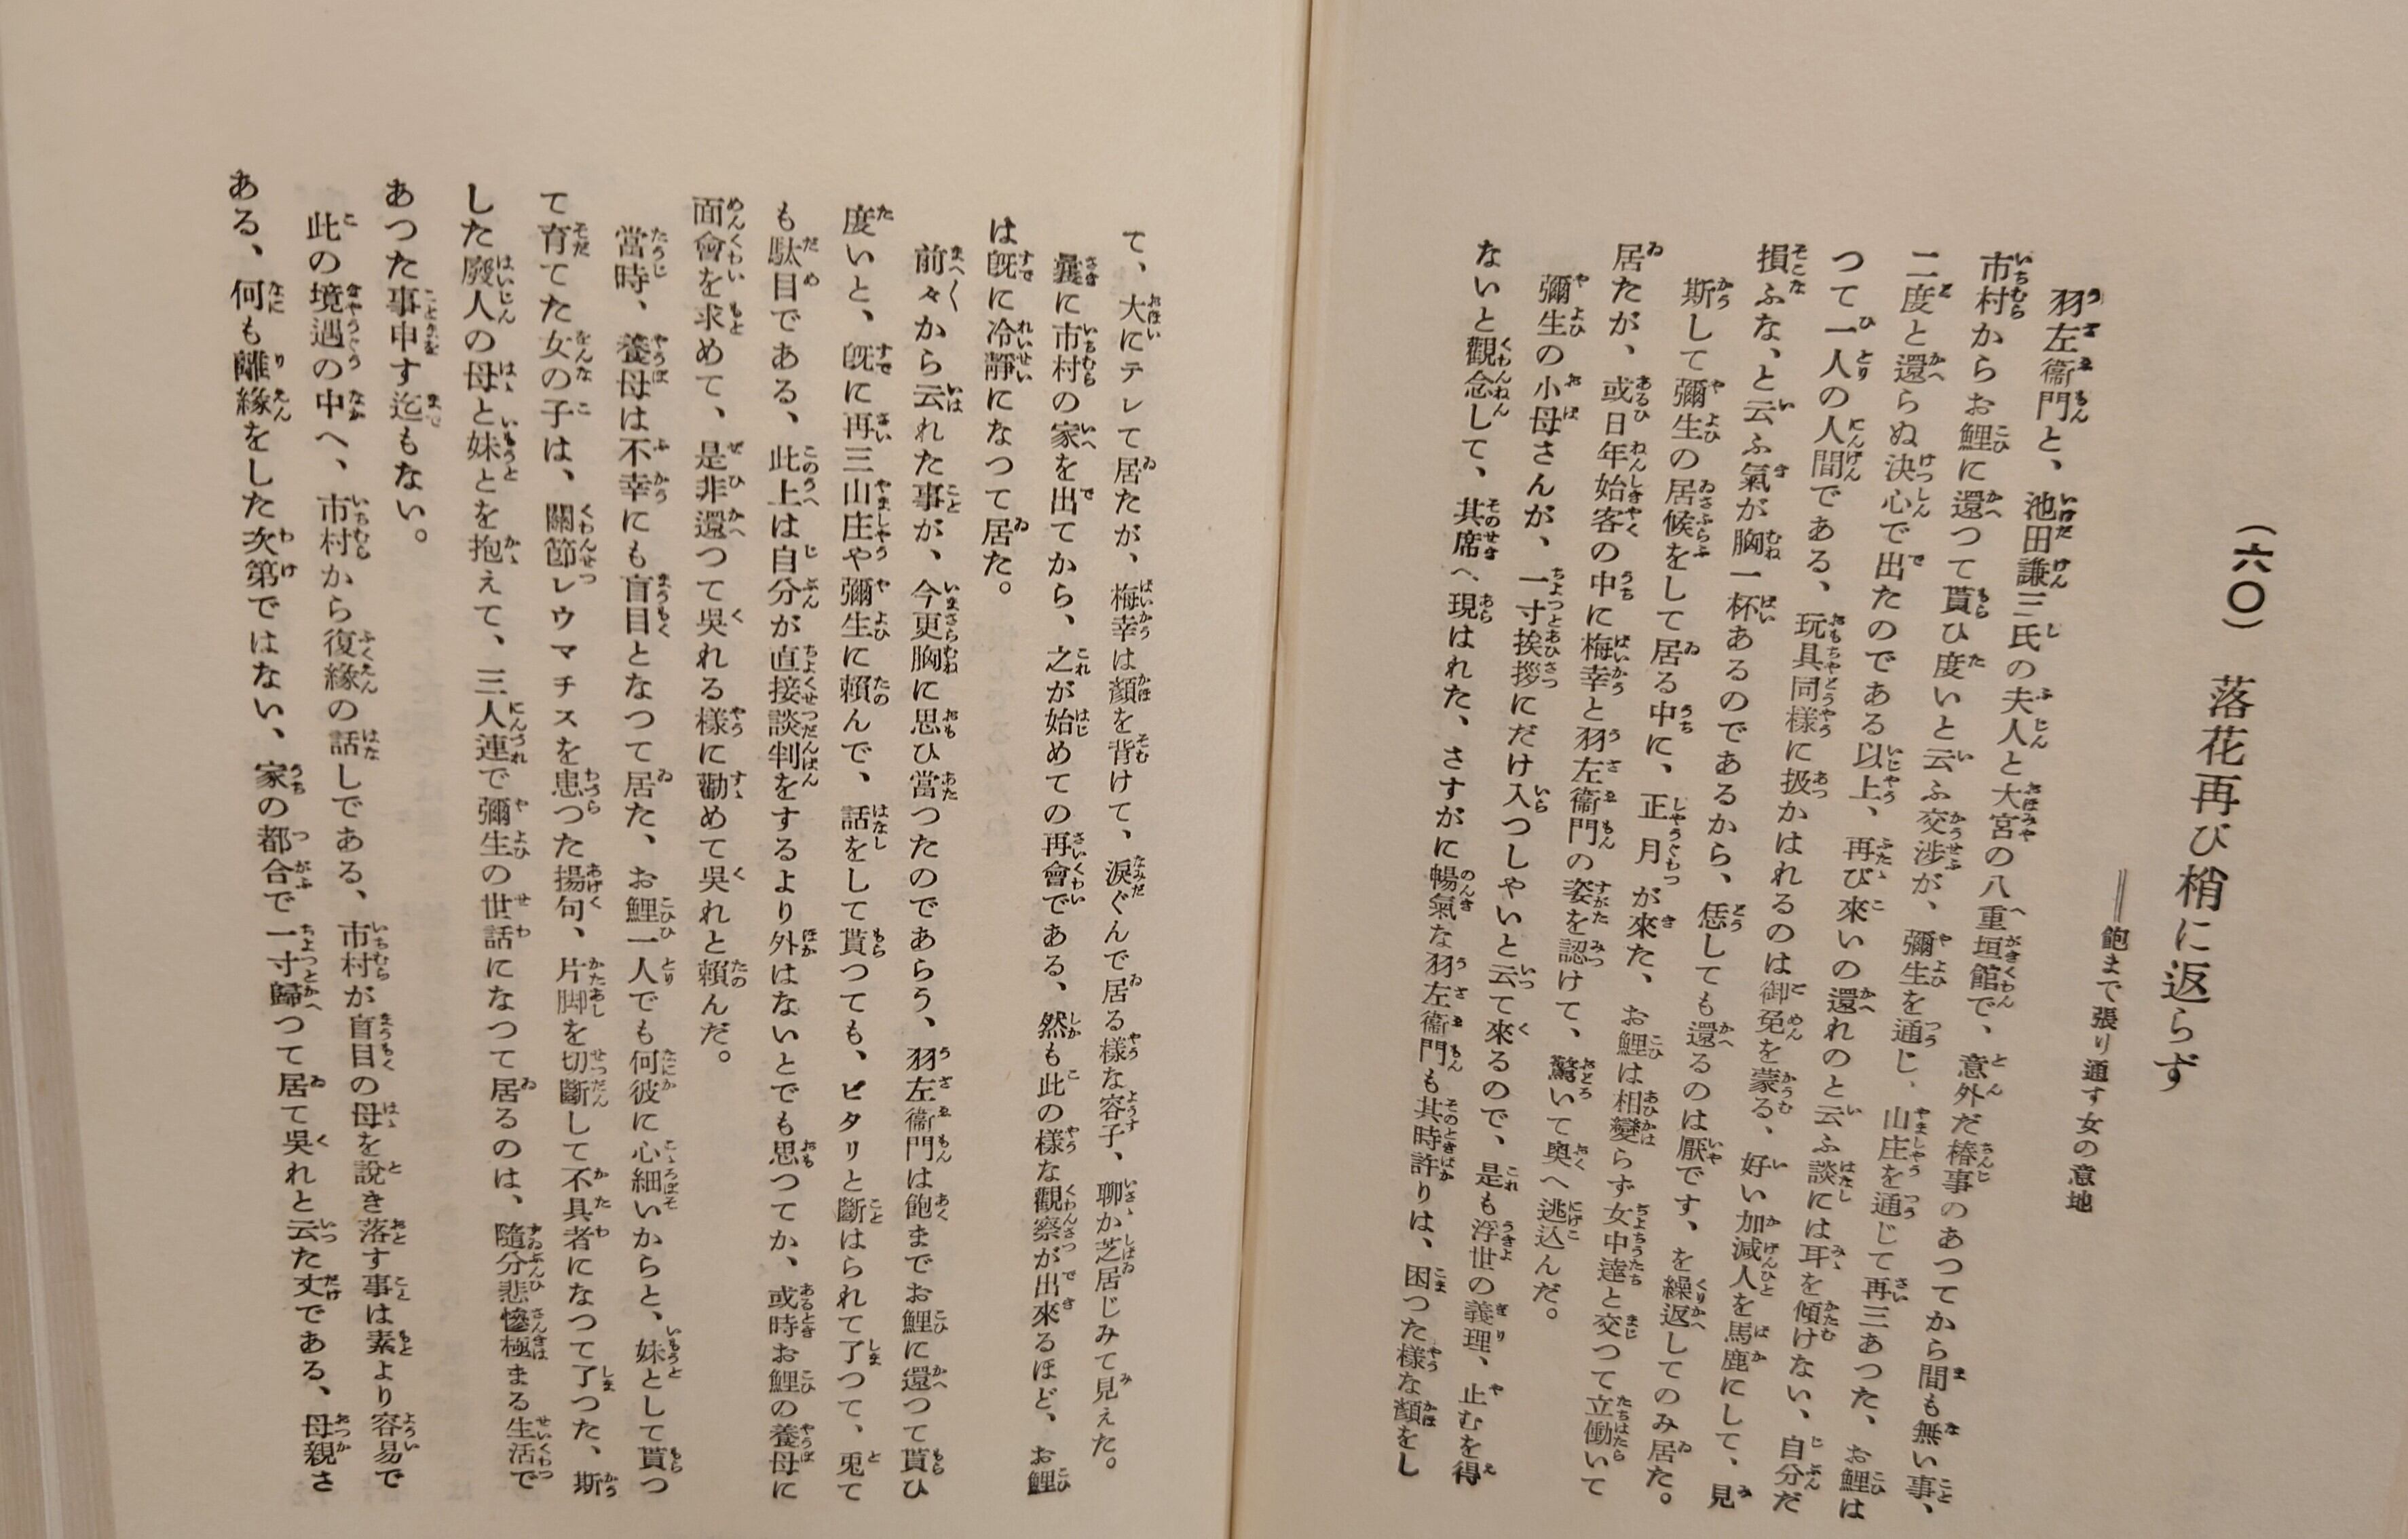 （六〇）　落花再び梢に返らず
＝＝飽まで張り通す女の意地
羽左衞門と、池田謙三氏の夫人と大宮の八重垣館で、意外だ椿事のあつてから間も無い事、
市村からお鯉に還つて貰ひ度いと云ふ交渉が、彌生を通じ、山庄を通じて再三あつた、お鯉は
二度と還らぬ決心で出たのである以上、再び來いの還れのと云ふ談には耳を傾けない、自分だ
つて一人の人間である、玩具同樣に扱かはれるのは御免を蒙る、好い加減人を馬鹿にして、見
損ふな、と云ふ氣が胸一杯あるのであるから、恁しても還るのは厭です、を繰返してのみ居た。
斯して彌生の居候をして居る中に、正月が來た、お鯉は相變らず女中達と交つて立働いて
居たが、或日年始客の中に梅幸と羽左衞門の姿を認けて、驚いて奧へ逃込んだ。
彌生の小母さんが、一寸挨拶にだけ入つしやいと云て來るので、是も浮世の義理、止むを得
ないと觀念して、其席へ現はれた、さすがに暢氣な羽左衞門も其時許りは、困つた樣な顏をし
て、大にテレて居たが、梅幸は顏を背けて、淚ぐんで居る樣な容子、聊か芝居じみて見えた。
曩に市村の家を出てから、之が始めての再會である、然も此の樣な觀察が出來るほど、お鯉
は旣に冷靜になつて居た。
前々から云れた事が、今更胸に思ひ當つたのであらう、羽左衞門は飽までお鯉に還つて貰ひ
度いと、旣に再三山庄や彌生に賴んで、話をして貰つても、ピタリと斷はられて了つて、兎て
も駄目である、此上は自分が直接談判をするより外はないとでも思つてか、或時お鯉の養母に
面會を求めて、是非還つて吳れる樣に勸めて吳れと賴んだ。
當時、養母は不幸にも盲目となつて居た、お鯉一人でも何彼に心細いからと、妹として貰つ
て育てた女の子は、關節レウマチスを患つた揚句、片脚を切斷して不具者になつて了つた、斯
した廢人の母と妹とを抱えて、三人連で彌生の世話になつて居るのは、隨分悲慘極まる生活で
あつた事申す迄もない。
此の境遇の中へ、市村から復緣の話しである、市村が盲目の母を說き落す事は素より容易で
ある、何も離緣をした次第ではない、家の都合で一寸歸つて居て吳れと云た丈である、母親さ